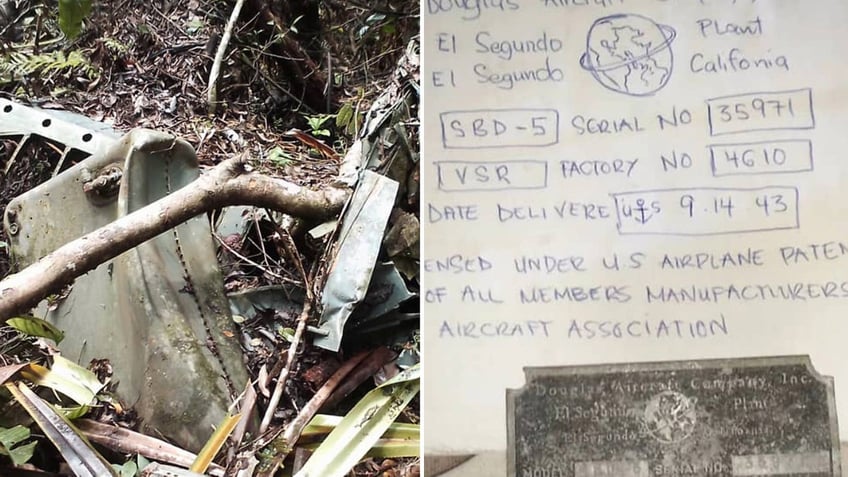 Douglas Aircraft
El Segundo Plant
El Segundo Califonia
SBD-5 SERIAL NO 35971
VSR FACTORY NO 4610
DATE DELIVERE U S 9.14 43
ENSED UNDER U.S AIRPLANE PATEN
OF ALL MEMBERS MANUFACTURERS
AIRCRAFT ASSOCIATION
Douglas Aircraft Company, Inc.
El Segundo Plant
El Segundo California
MODEL SERIAL NO.